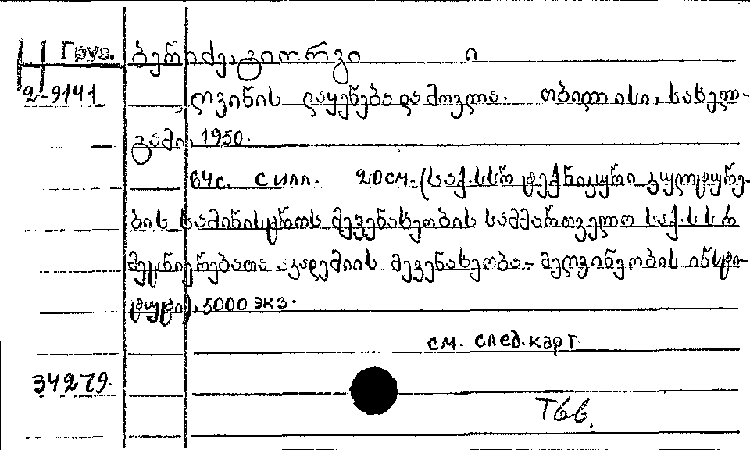 Груз. ბერიძე, გიორგი ი
2-9141 ღვინის დაყენება და მოვლა. თბილისი, სახელ-
გამი, 1950.
64с. с илл. 20см. (საქ. სსრ ტექნიკური კულტურე-
ბის სამინისტროს მევენახეობის სამმართველო საქ. ს ს რ
მეცნიერებათა აკადემიის მევენახეობა-მეღვინეობის ინსტი-
ტუტი). 5000 экз.
см. след. карт.
34279
Т66.